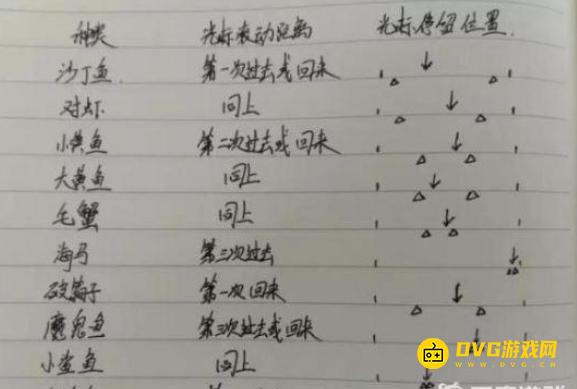 种类 光标滚动距离 光标停留位置
沙丁鱼 第一次过去或回来
对虾 同上
小黄鱼 第二次过去或回来
大黄鱼 同上
毛蟹 同上
海马 第三次过去
破篓子 第一次回来
魔鬼鱼 第三次过去或回来
小鲨鱼 同上
DVG游戏网